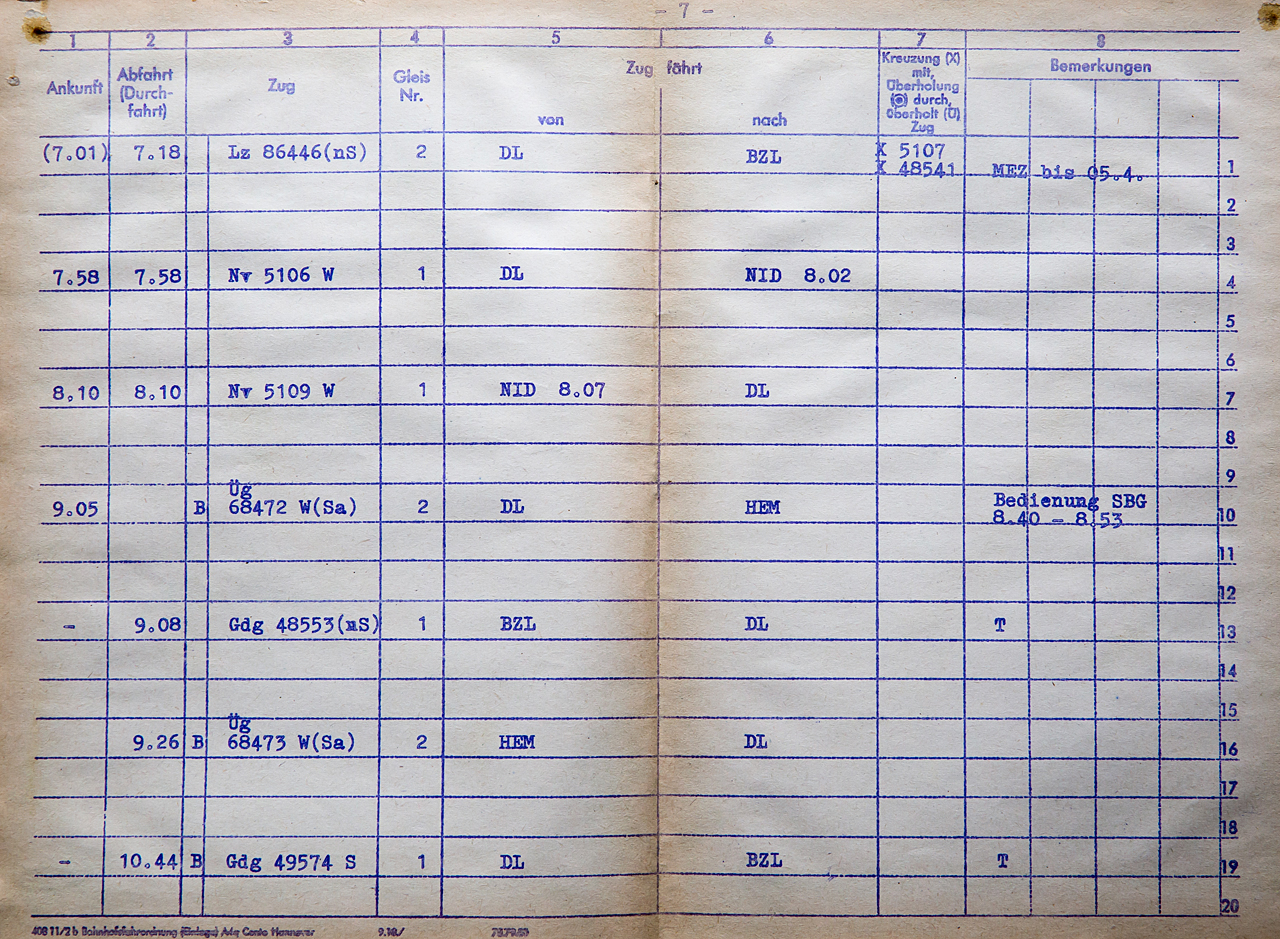 - 7 -
1 2 3 4 5 6 7 8
Ankunft
Abfahrt
(Durch-
fahrt)
Zug
Gleis
Nr.
Zug fährt
von
nach
Kreuzung (X)
mit,
Überholung
durch,
überholt (Ü)
Zug
Bemerkungen
(7.01) 7.18 Lz 86446(nS) 2 DL BZL X 5107
X 48541 MEZ bis 05.4. 1
2
3
7.58 7.58 Nv 5106 W 1 DL NID 8.02 4
5
6
8.10 8.10 Nv 5109 W 1 NID 8.07 DL 7
8
9
Üg
9.05 B 68472 W(Sa) 2 DL HEM Bedienung SBG
8.40 - 8.53 10
11
12
- 9.08 Gdg 48553(nS) 1 BZL DL T 13
14
15
Üg
9.26 B 68473 W(Sa) 2 HEM DL 16
17
18
- 10.44 B Gdg 49574 S 1 DL BZL T 19
20
408 11/2 b Bahnhofsfahrordnung (Einlage) Hannover